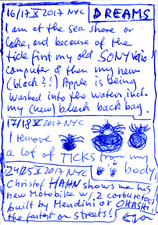 16/17 X 2017 NYC
DREAMS
I am at the sea shore or
lake, and because of the
tide first my old SONY Vaio
computer & then my new
(black?!) Apple is being
washed into the water, incl.
my (new) black back bag.
17/18 X 2017 NYC
I remove
a lot of TICKS from my
body
24/25 X 2017 NYC
Christof HAHN shows me his
new Motorbike w/ 2 carburetors
built by Mendini or OHASHI
the fastest on streets!!